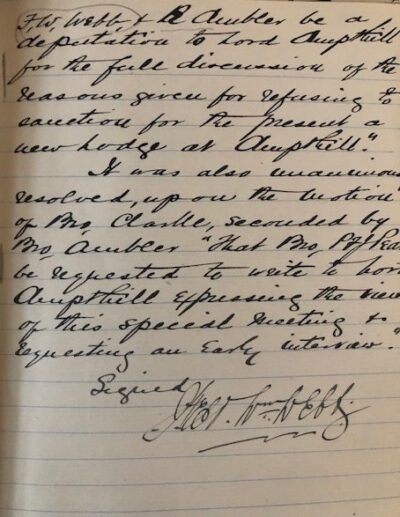 F.W. Webb & R Ambler be a
deputation to Lord Ampthill
for the full discussion of the
reasons given for refusing to
sanction for the present a
new Lodge at Ampthill."
It was also unanimous
resolved, upon the motion
of Bro, Clarke, seconded by
Bro, Ambler "That Bro,
be requested to write to Lord
Ampthill expressing the view
of this special meeting &
requesting an Early interview."
Signed
Webb.